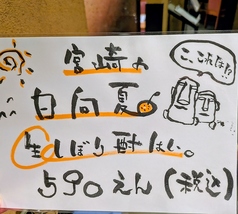 宮崎の
日向夏
生しぼり酎はい。
590えん(税込)
こ、これは!?